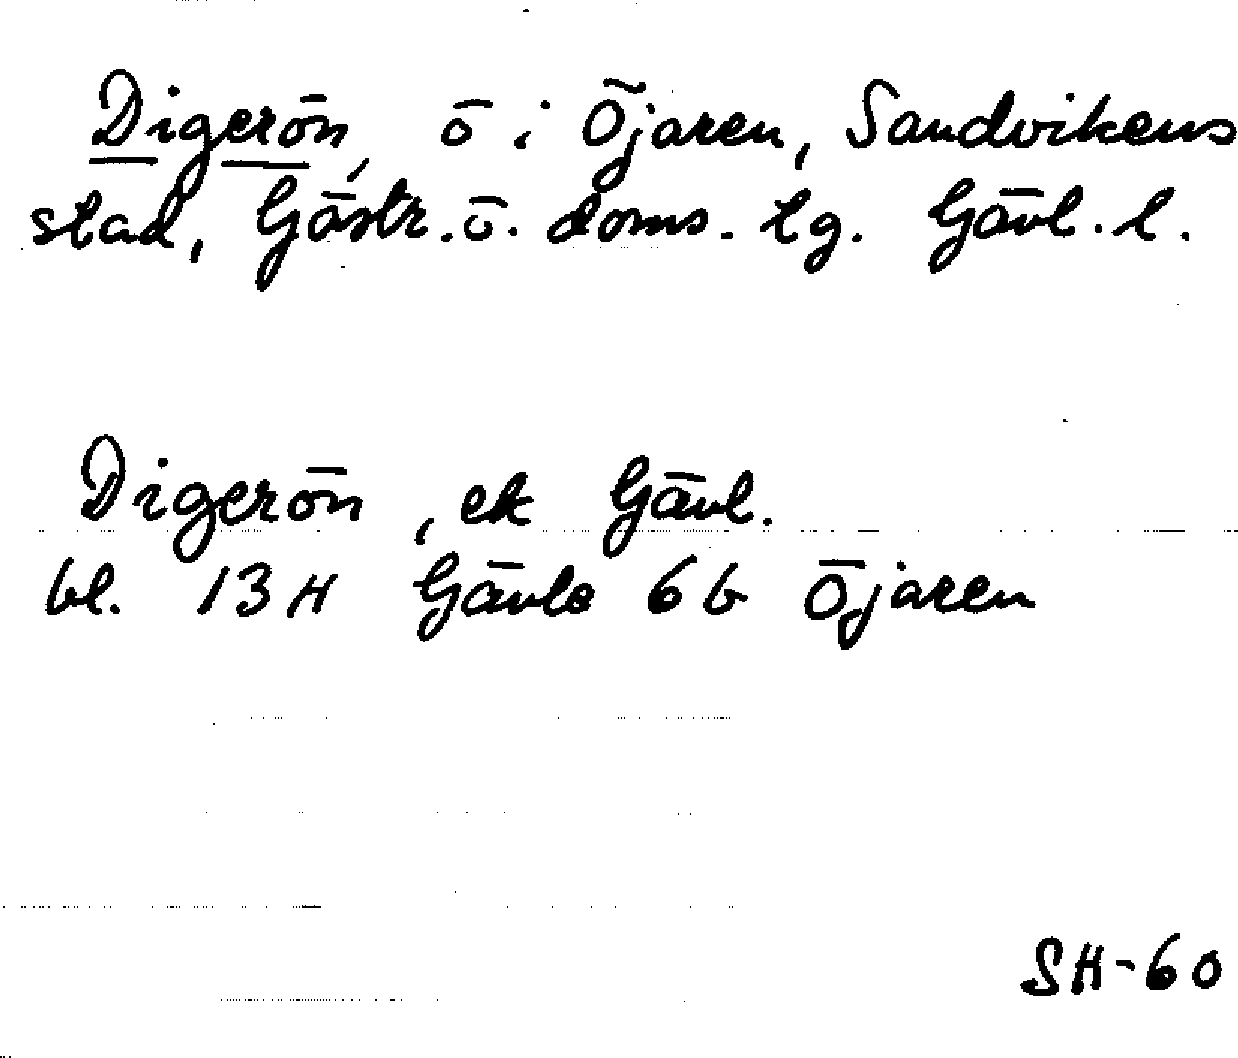 Digerön, ö i Öjaren, Sandvikens
stad, Gästr. ö. doms. tg. Gävl. l.
Digerön, ek Gävl.
bl. 13H Gävle 6b Öjaren
SH-60